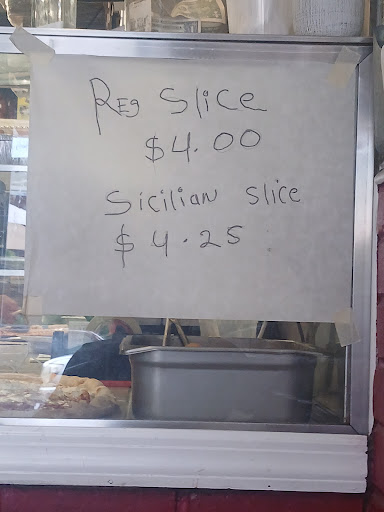 Reg Slice
$4.00
Sicilian Slice
$4.25